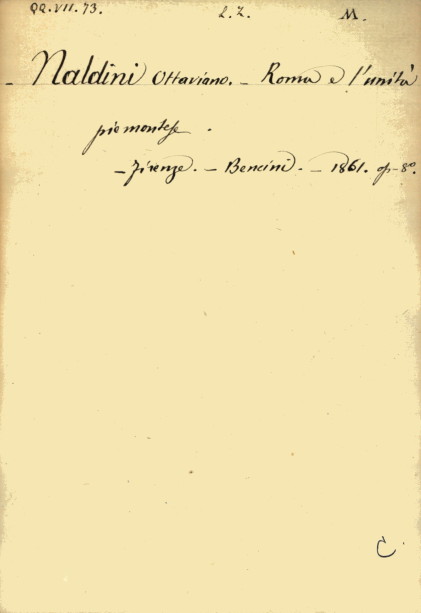 QQ.VII.73. L.Z. M.
- Naldini Ottaviano. - Roma e l'unità
piemontese.
- Firenze. - Bencini. - 1861. op-8°.
C.